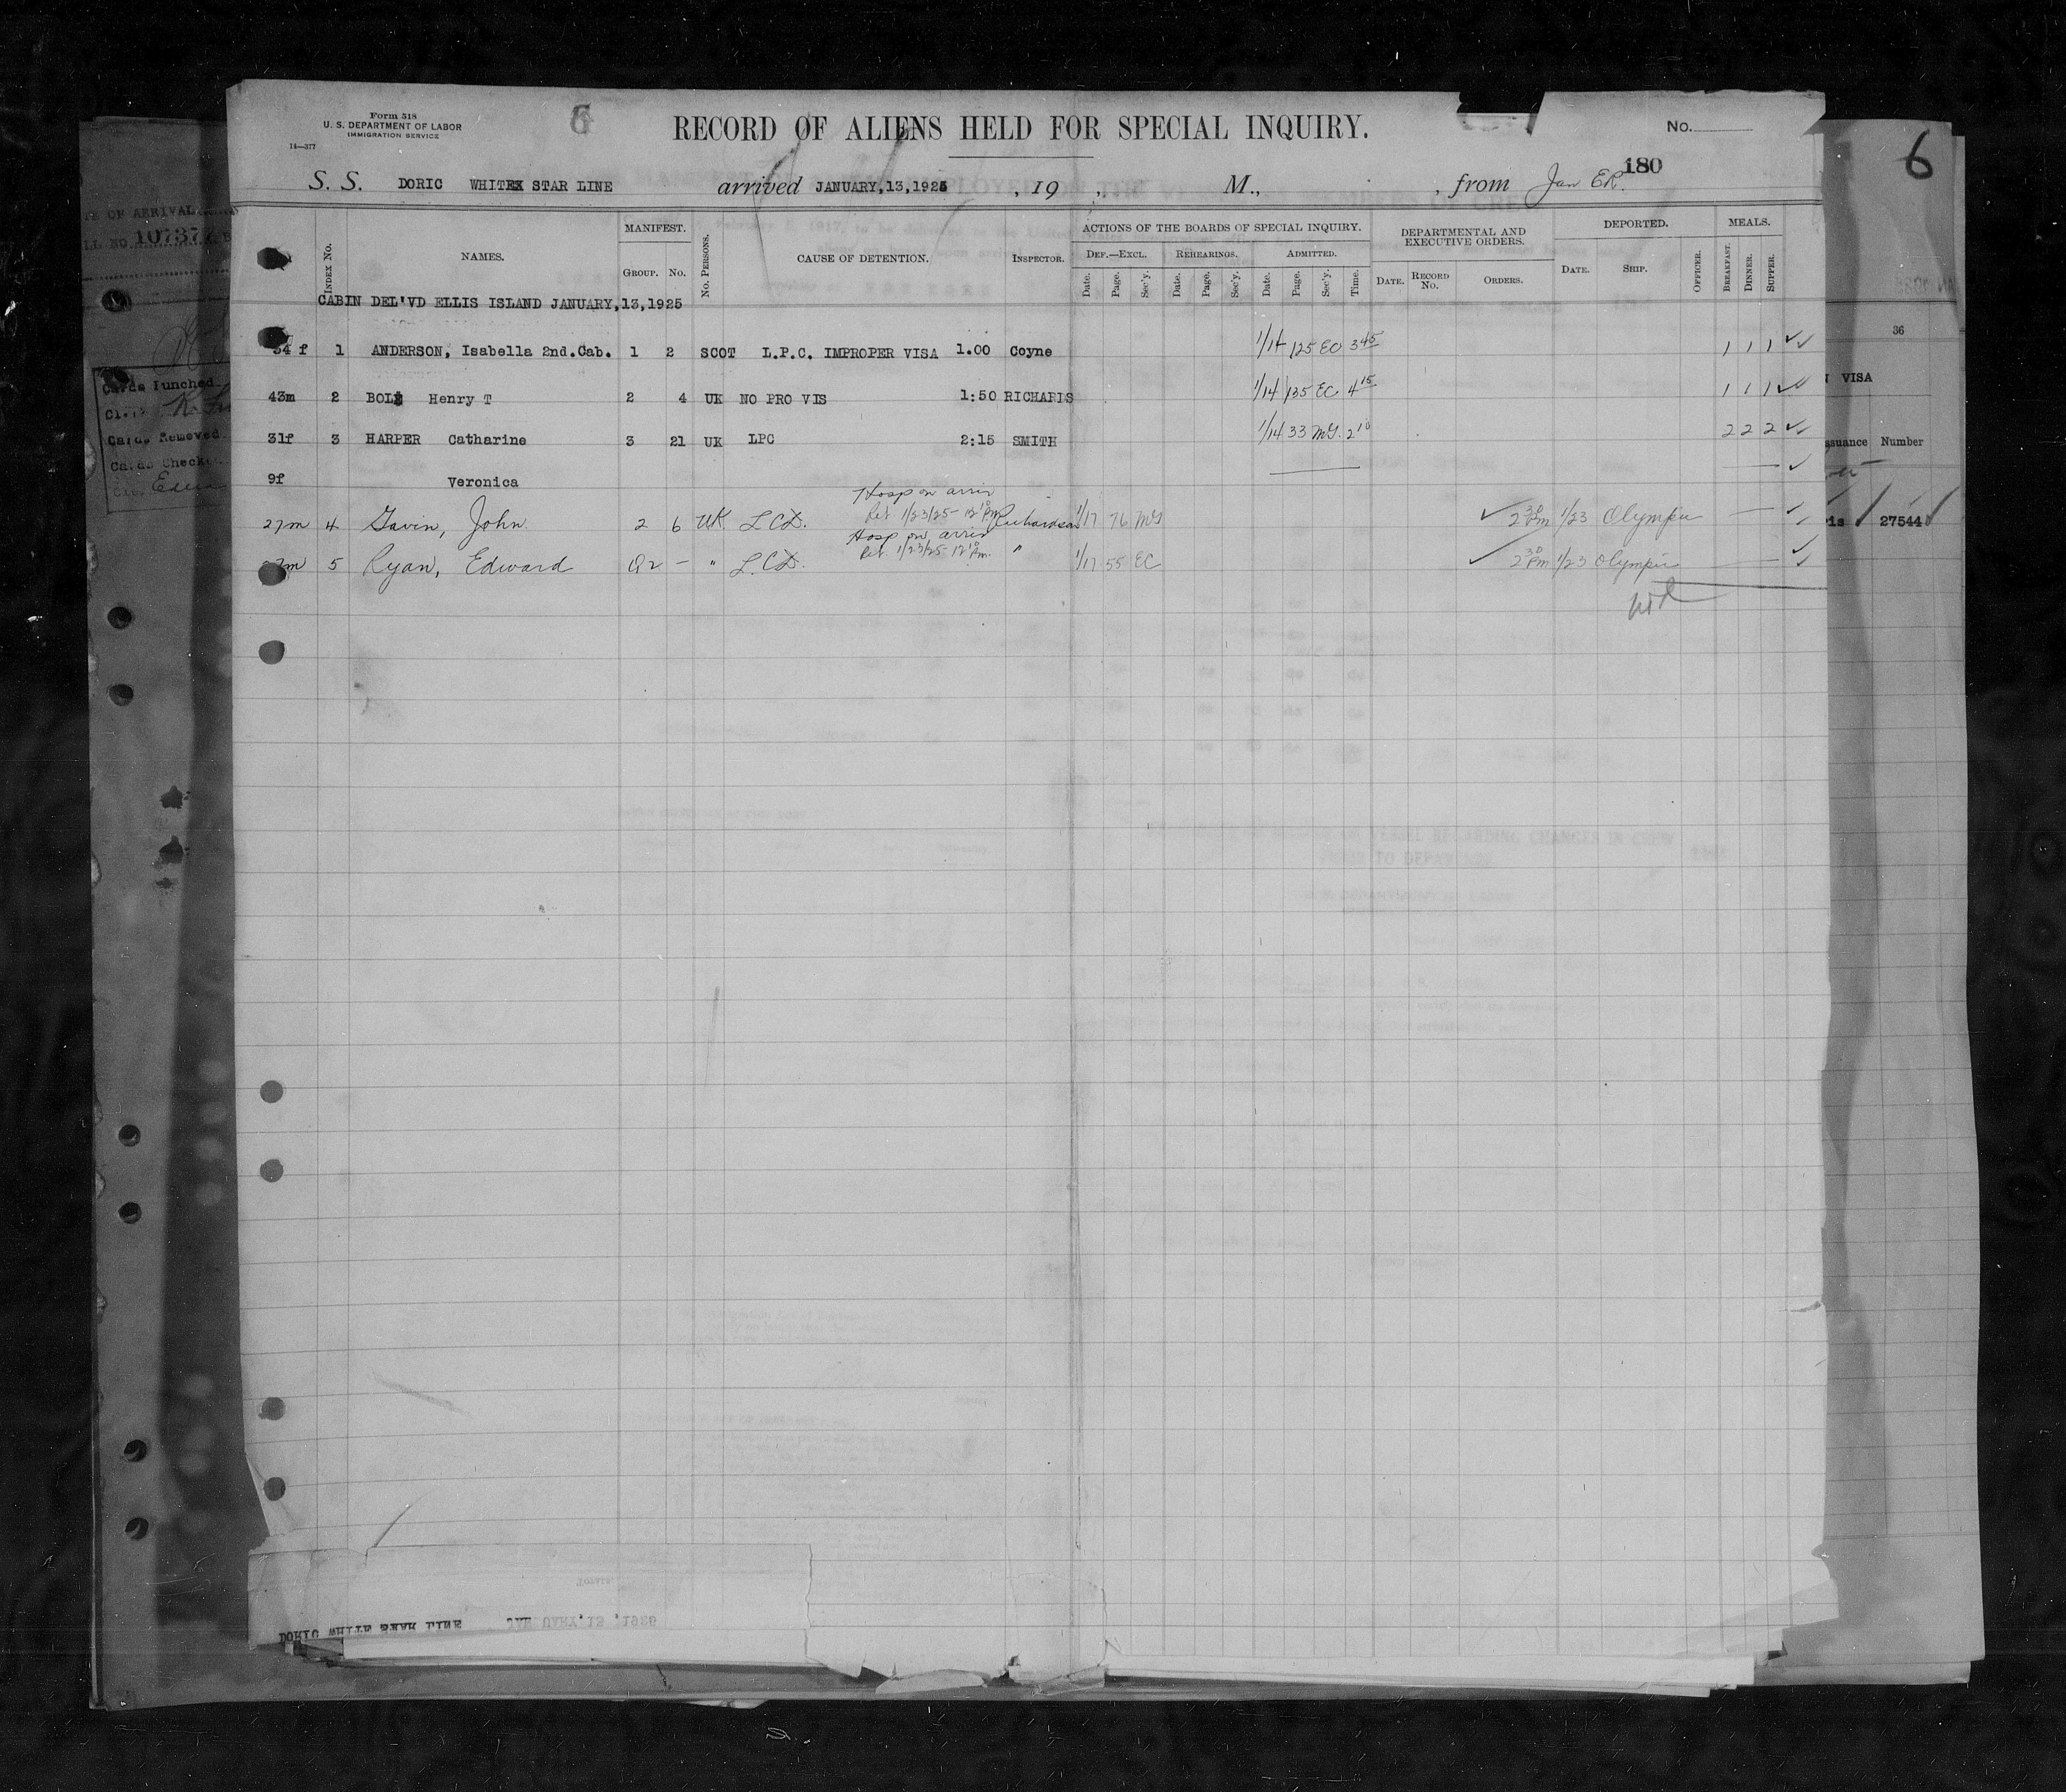 Form 518
U. S. DEPARTMENT OF LABOR
IMMIGRATION SERVICE
14—377
6
RECORD OF ALIENS HELD FOR SPECIAL INQUIRY.
No.
180
6
S. S. DORIC WHITE STAR LINE arrived JANUARY,13,1925 , 19 , M., , from Jan ER.
MANIFEST. ACTIONS OF THE BOARDS OF SPECIAL INQUIRY. DEPARTMENTAL AND EXECUTIVE ORDERS. DEPORTED. MEALS.
Index No. NAMES. Group. No. No. Persons. CAUSE OF DETENTION. Inspector. Def.—Excl. Rehearings. Admitted.
Date. Page. Sec'y. Date. Page. Sec'y. Date. Page. Sec'y. Time. Date. Record No. Orders. Date. Ship. Officer. Breakfast. Dinner. Supper.
CABIN DEL'VD ELLIS ISLAND JANUARY,13,1925
34 f 1 ANDERSON, Isabella 2nd.Cab. 1 2 SCOT L.P.C. IMPROPER VISA 1.00 Coyne 1/14 125 EC 3 45 1 1 1
43m 2 Henry T 2 4 UK NO PRO VIS 1:50 RICHARDS 1/14 135 EC 4 15 1 1 1
31f 3 HARPER Catharine 3 21 UK LPC 2:15 SMITH 1/14 33 MG. 2 10 2 2 2
9f Veronica
Hosp on arriv
27m 4 Gavin, John 2 6 UK LCD. Ret 1/23/25 - 12 10 PM Richardson 1/17 76 MG 2 30 Pm 1/23 Olympic
Hosp on arriv
5 Ryan, Edward Q2 - " L.C.D. Ret. 1/23/25 - 12 10 Pm. " 1/17 55 EC 2 30 Pm 1/23 Olympic
OF ARRIVAL
LL NO. 10737
Cards Punched
Cards Removed
Cards Checked
36
VISA
Number
27544
DORIC WHITE STAR LINE